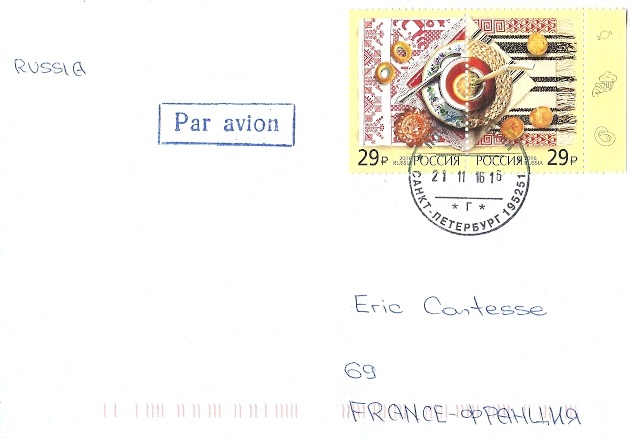 RUSSIA
Par avion
29₽ 2016 RUSSIA РОССИЯ
РОССИЯ 2016 RUSSIA 29₽
21 11 16 16
* Г *
САНКТ-ПЕТЕРБУРГ 195251
Eric Contesse
69
FRANCE-ФРАНЦИЯ